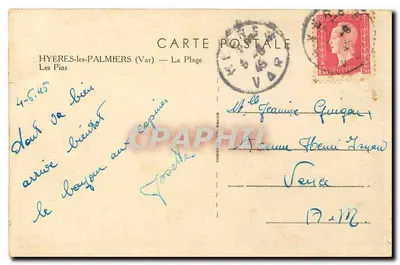 CARTE POSTALE
HYÈRES-les-PALMIERS (Var) — La Plage
Les Pins
HYERES
VAR
4-6-45
Tout va bien
arrive bientôt
le bonjour aux copines
Josette
Mlle Jeannine Guigou
Avenue Henri Isnard
Vence
A-M.
CPAPHIL